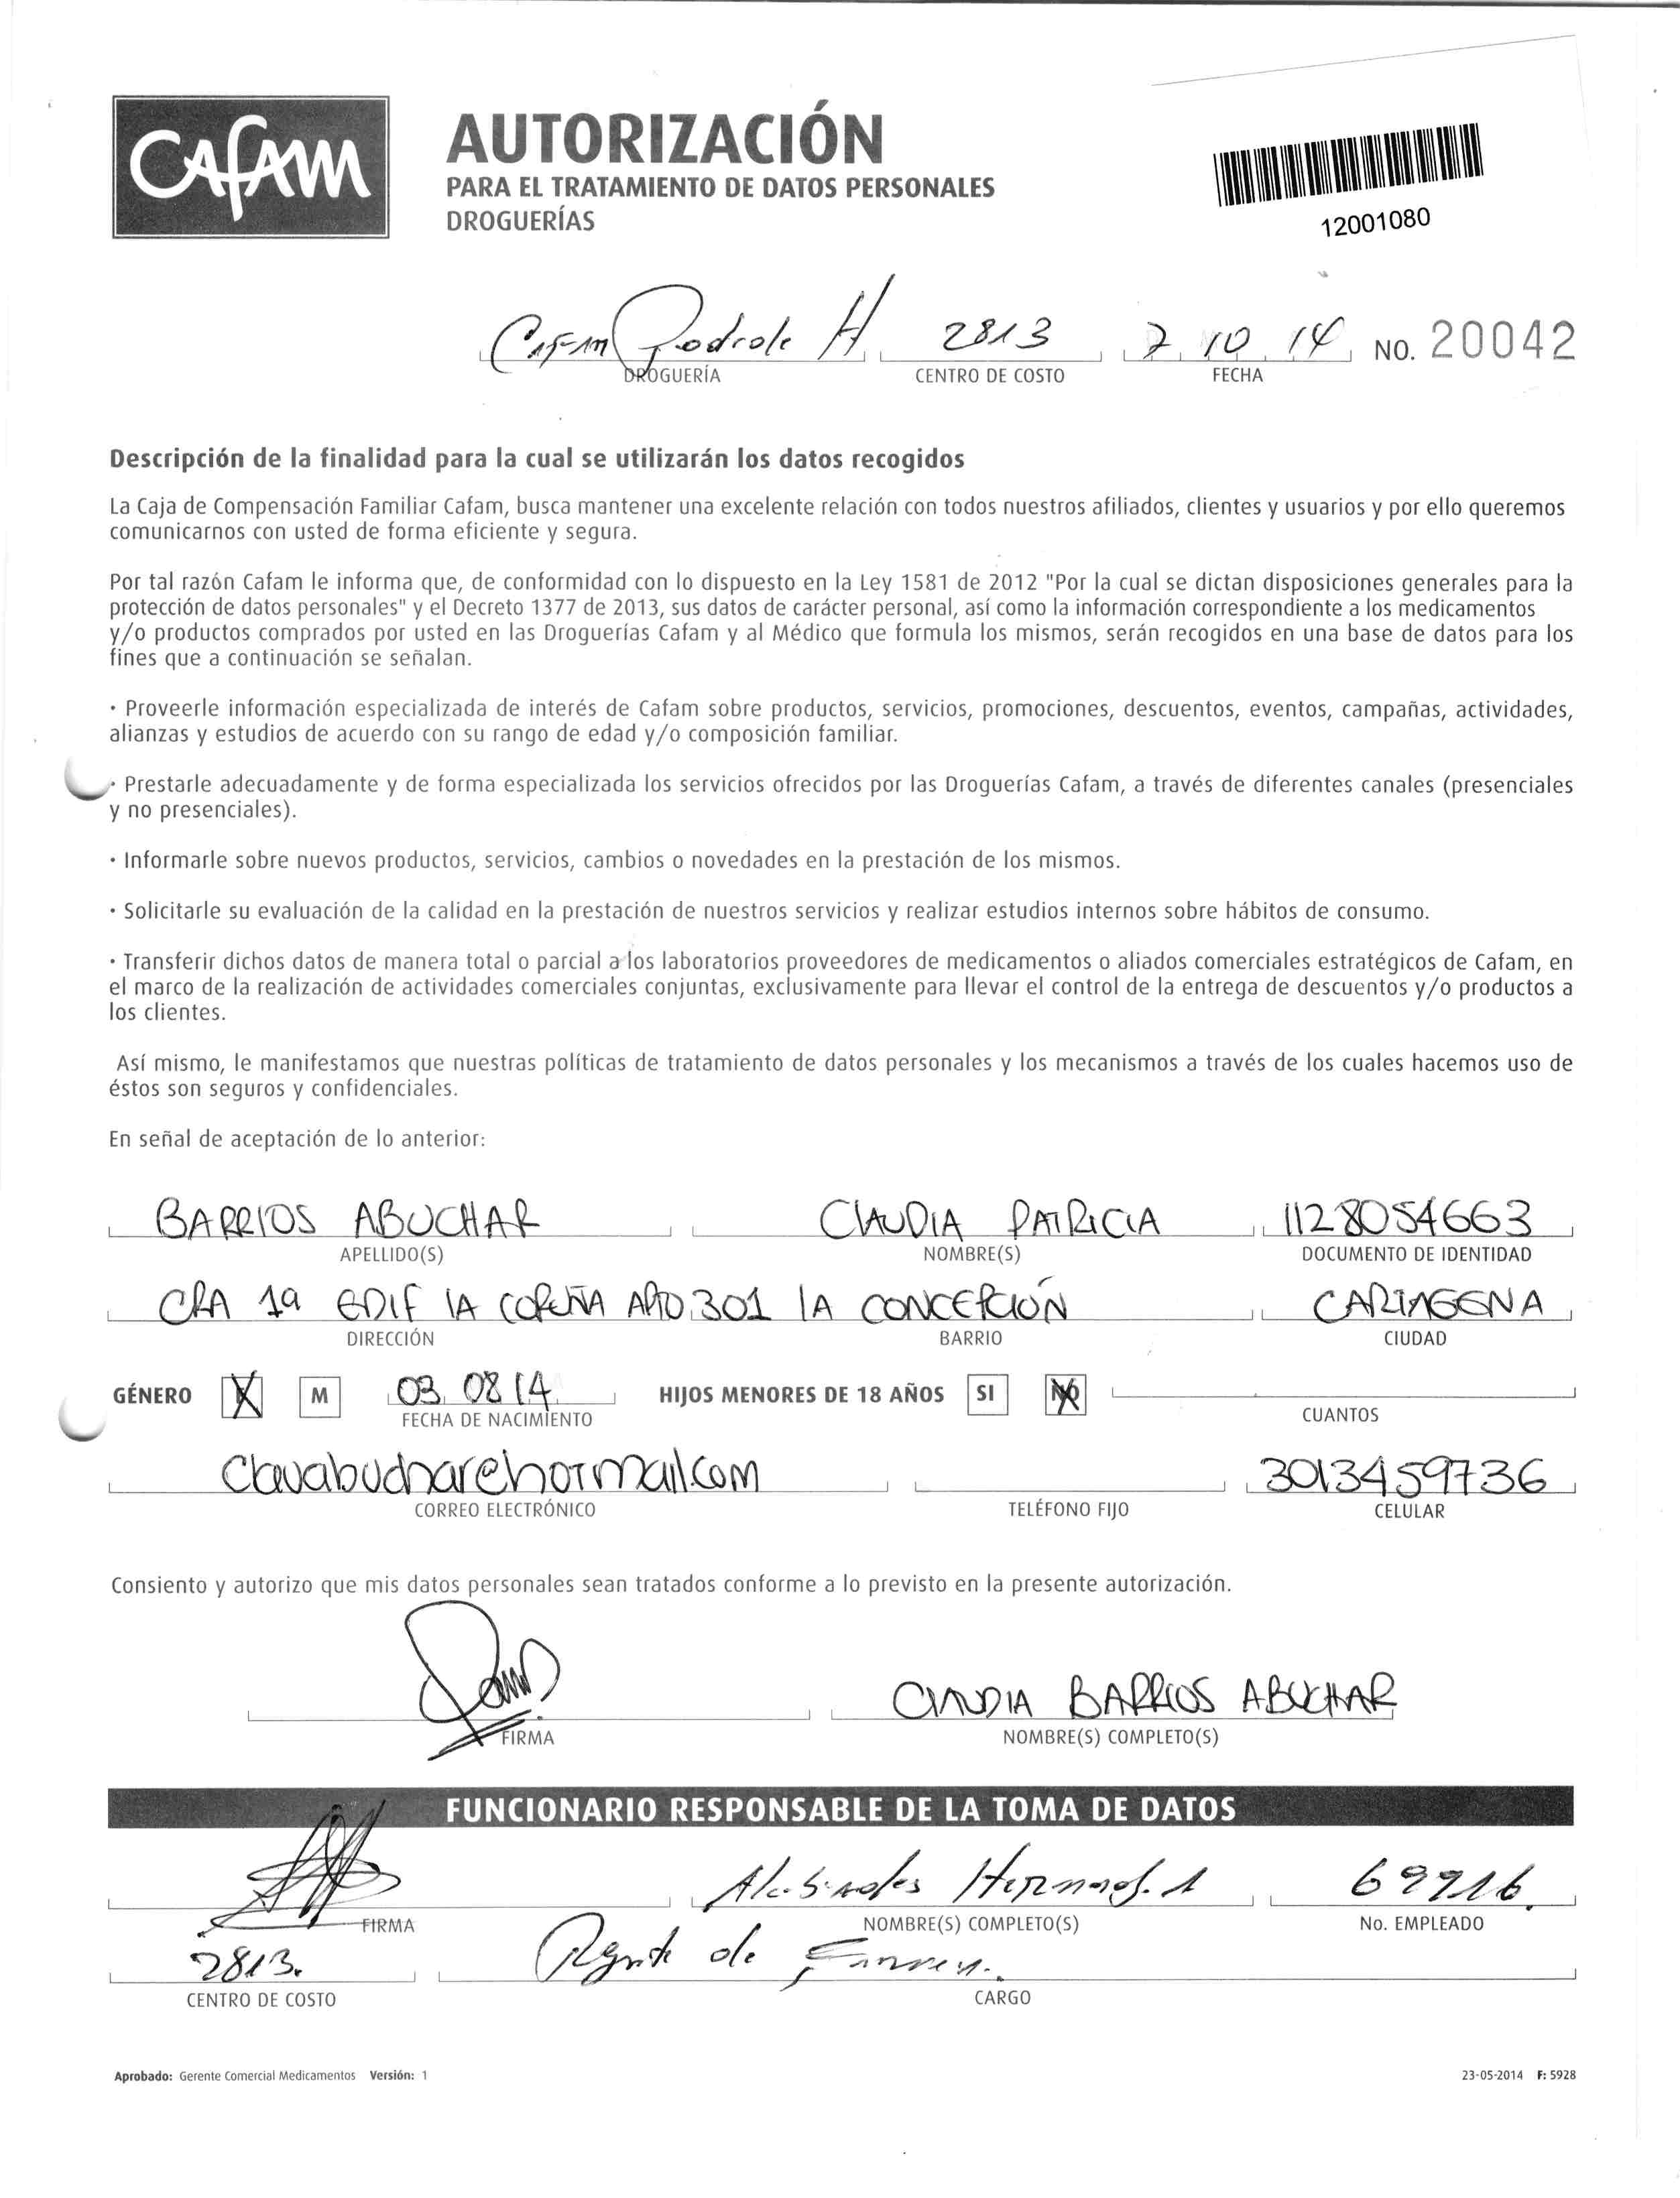 CAFAM
AUTORIZACIÓN
PARA EL TRATAMIENTO DE DATOS PERSONALES
DROGUERÍAS
12001080
2813 7 10 14 NO. 20042
DROGUERÍA CENTRO DE COSTO FECHA
Descripción de la finalidad para la cual se utilizarán los datos recogidos
La Caja de Compensación Familiar Cafam, busca mantener una excelente relación con todos nuestros afiliados, clientes y usuarios y por ello queremos
comunicarnos con usted de forma eficiente y segura.
Por tal razón Cafam le informa que, de conformidad con lo dispuesto en la Ley 1581 de 2012 "Por la cual se dictan disposiciones generales para la
protección de datos personales" y el Decreto 1377 de 2013, sus datos de carácter personal, así como la información correspondiente a los medicamentos
y/o productos comprados por usted en las Droguerías Cafam y al Médico que formula los mismos, serán recogidos en una base de datos para los
fines que a continuación se señalan.
· Proveerle información especializada de interés de Cafam sobre productos, servicios, promociones, descuentos, eventos, campañas, actividades,
alianzas y estudios de acuerdo con su rango de edad y/o composición familiar.
· Prestarle adecuadamente y de forma especializada los servicios ofrecidos por las Droguerías Cafam, a través de diferentes canales (presenciales
y no presenciales).
· Informarle sobre nuevos productos, servicios, cambios o novedades en la prestación de los mismos.
· Solicitarle su evaluación de la calidad en la prestación de nuestros servicios y realizar estudios internos sobre hábitos de consumo.
· Transferir dichos datos de manera total o parcial a los laboratorios proveedores de medicamentos o aliados comerciales estratégicos de Cafam, en
el marco de la realización de actividades comerciales conjuntas, exclusivamente para llevar el control de la entrega de descuentos y/o productos a
los clientes.
Así mismo, le manifestamos que nuestras políticas de tratamiento de datos personales y los mecanismos a través de los cuales hacemos uso de
éstos son seguros y confidenciales.
En señal de aceptación de lo anterior:
BARRIOS ABUCHAR CLAUDIA PATRICIA 1128054663
APELLIDO(S) NOMBRE(S) DOCUMENTO DE IDENTIDAD
CRA 19 EDIF LA CORUÑA APTO 301 LA CONCEPCIÓN CARTAGENA
DIRECCIÓN BARRIO CIUDAD
GÉNERO M 03 08 14 HIJOS MENORES DE 18 AÑOS SI NO
FECHA DE NACIMIENTO CUANTOS
clauabuchar@hotmail.com 3013459736
CORREO ELECTRÓNICO TELÉFONO FIJO CELULAR
Consiento y autorizo que mis datos personales sean tratados conforme a lo previsto en la presente autorización.
CLAUDIA BARRIOS ABUCHAR
FIRMA NOMBRE(S) COMPLETO(S)
FUNCIONARIO RESPONSABLE DE LA TOMA DE DATOS
69916
FIRMA NOMBRE(S) COMPLETO(S) No. EMPLEADO
2813. Regente de
CENTRO DE COSTO CARGO
Aprobado: Gerente Comercial Medicamentos Versión: 1 23-05-2014 F: 5928